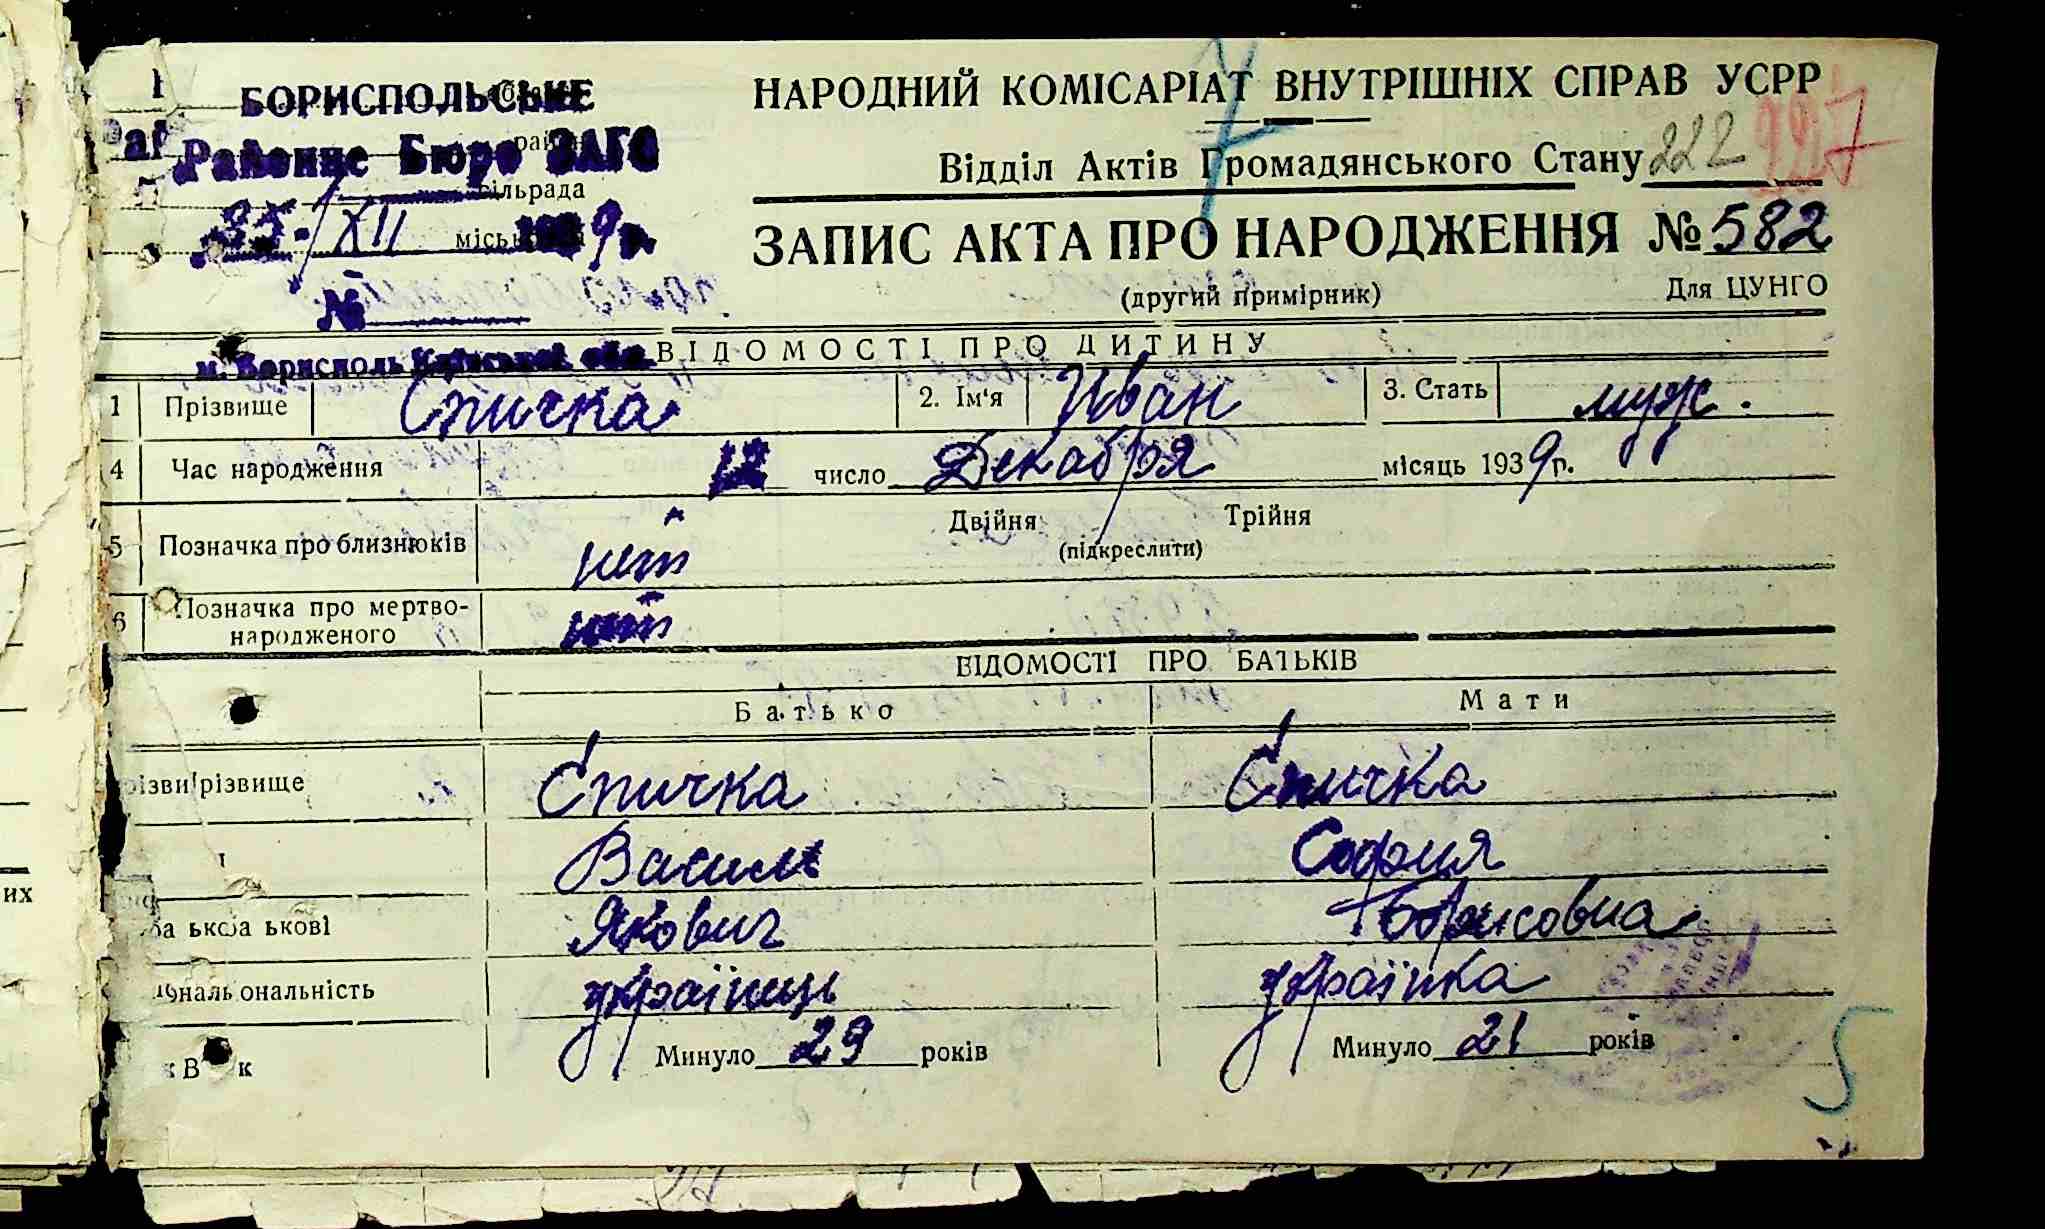 БОРИСПОЛЬСЬКЕ
Районне Бюро ЗАГС
район
сільрада
25/XII 1939 р.
№
м. Борисполь Київської обл.
НАРОДНИЙ КОМІСАРІАТ ВНУТРІШНІХ СПРАВ УСРР
Відділ Актів Громадянського Стану 222 227
ЗАПИС АКТА ПРО НАРОДЖЕННЯ № 582
(другий примірник) Для ЦУНГО
ВІДОМОСТІ ПРО ДИТИНУ
1 Прізвище Спичка 2. Ім'я Иван 3. Стать муж.
4 Час народження 12 число Декабря місяць 1939 р.
5 Позначка про близнюків нет Двійня Трійня
(підкреслити)
6 Позначка про мертво-
народженого нет
ВІДОМОСТІ ПРО БАТЬКІВ
Батько Мати
різвище Спичка Спичка
Василь София
ькові Якович Борисовна
ональність українець українка
В к Минуло 29 років Минуло 21 років
5
их